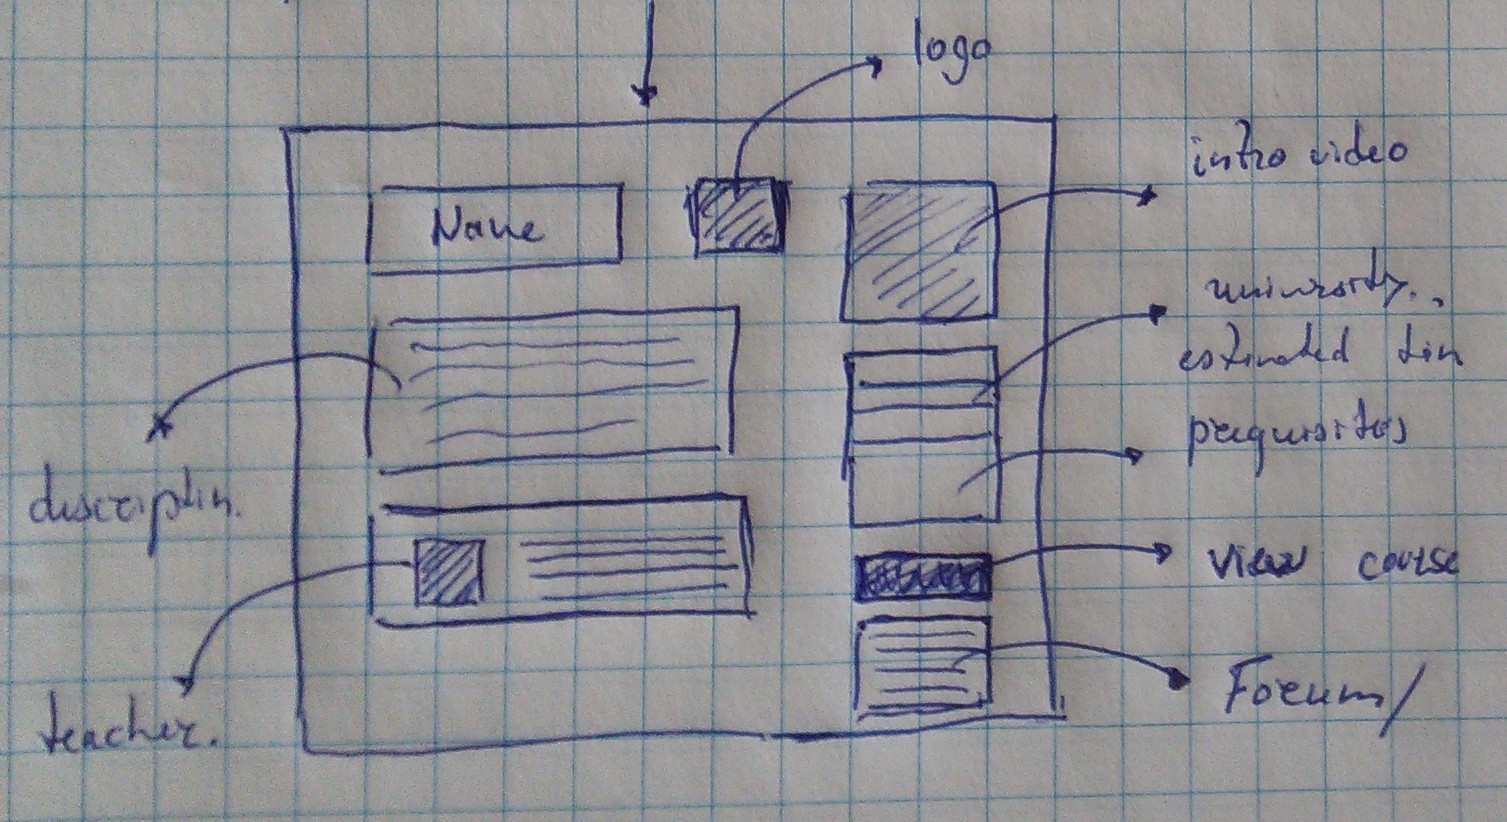 logo
intro video
Name
university..
estimated tim
prequisites
descriptin.
view course
teacher.
Forum/